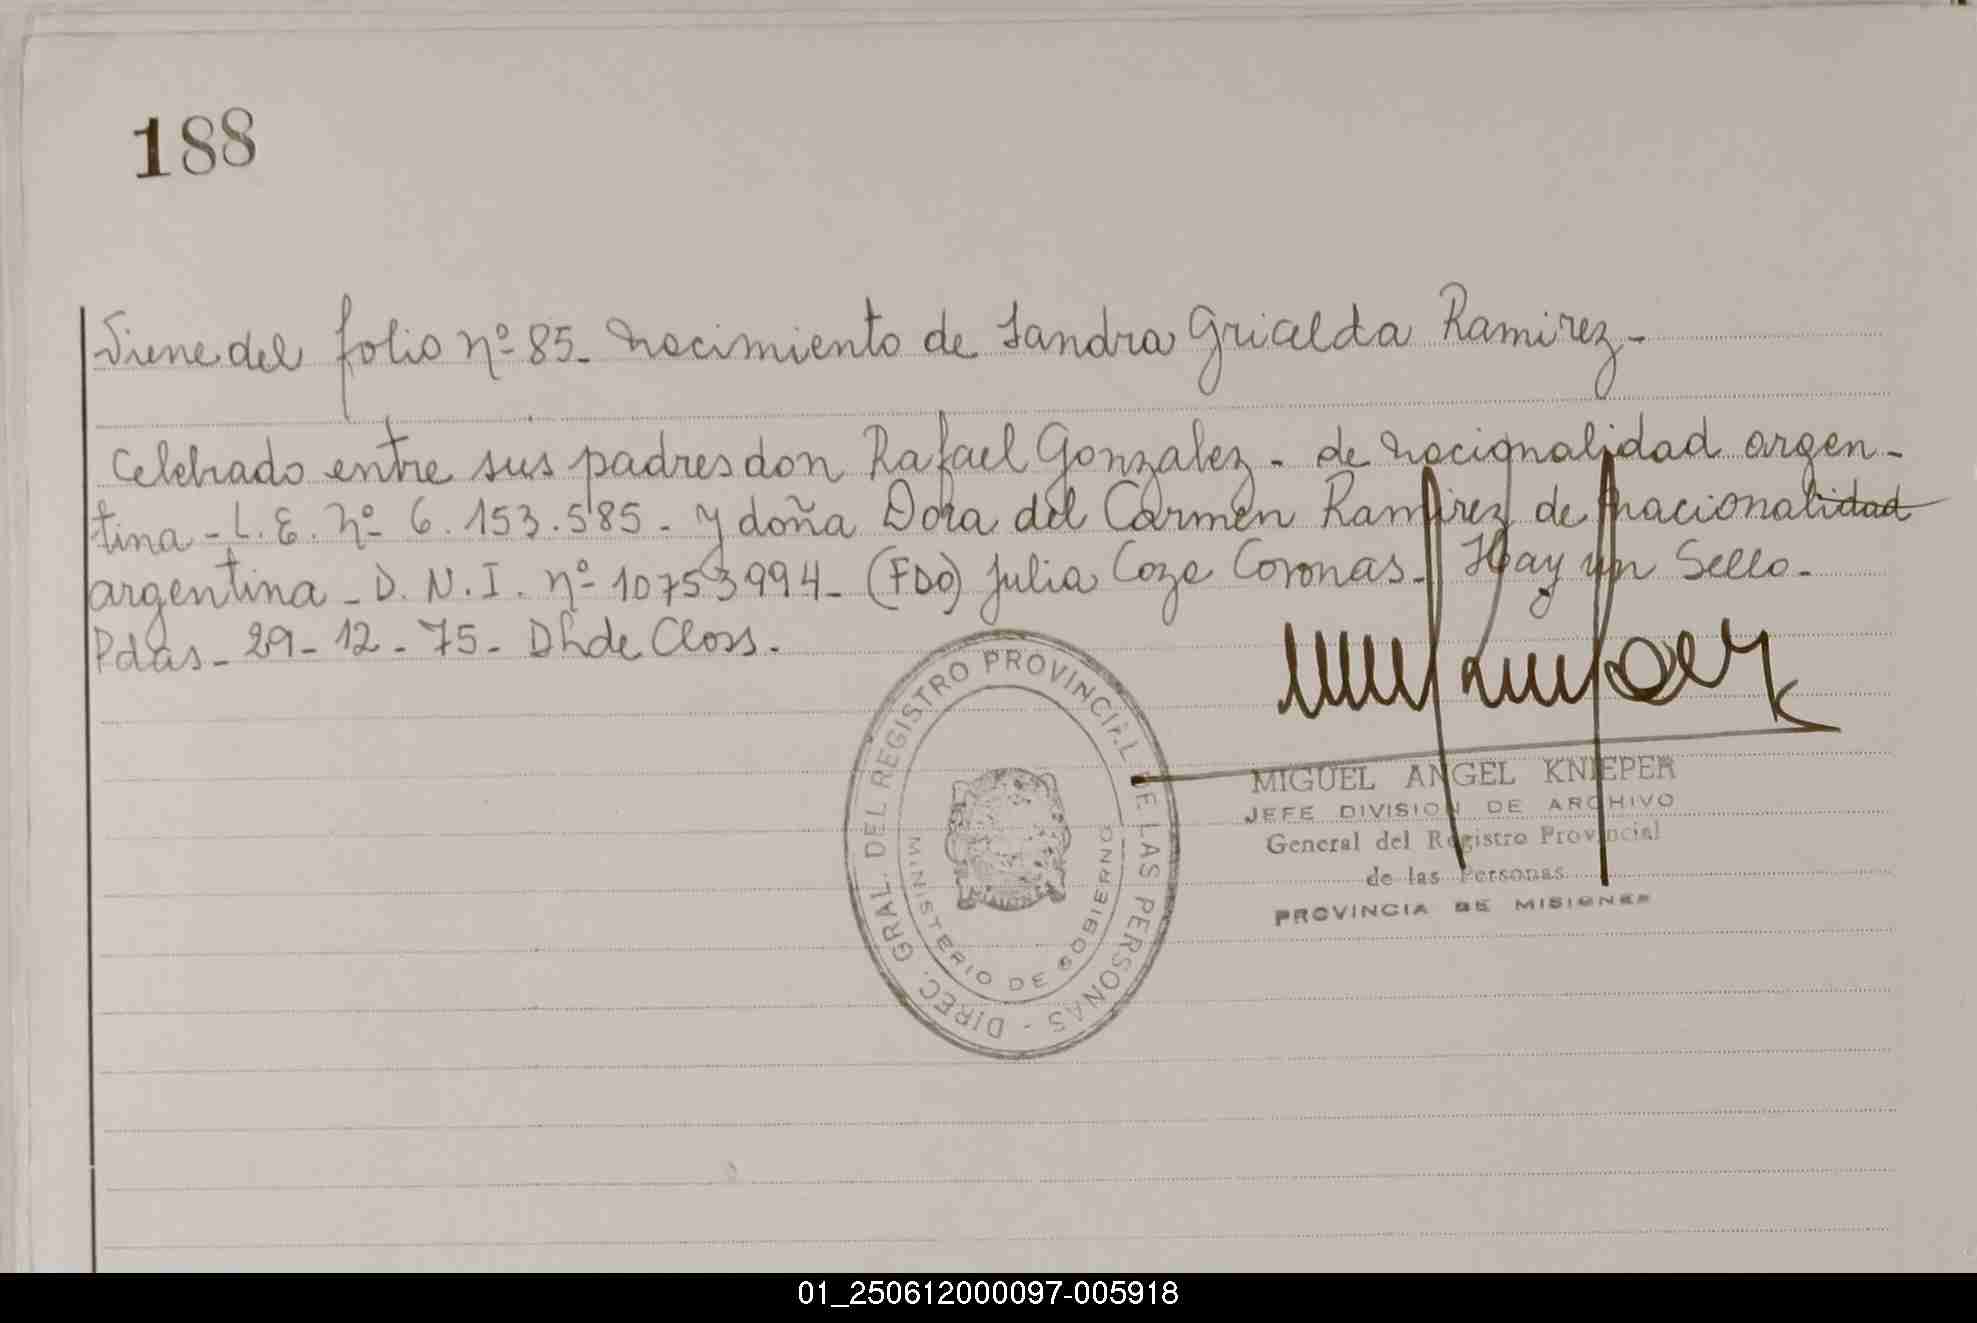 188
Viene del folio nº 85- Nacimiento de Sandra Gricelda Ramirez-
Celebrado entre sus padres don Rafael Gonzalez - de nacionalidad argen-
tina - L. E. nº 6.153.585 - y doña Dora del Carmen Ramirez de nacionalidad
argentina - D. N. I. nº 10753994- (FDO) Julia Coze Coronas- Hay un Sello-
Pdas - 29 - 12 - 75 - Dh de Closs.
DIREC. GRAL. DEL REGISTRO PROVINCIAL DE LAS PERSONAS -
MINISTERIO DE GOBIERNO
MIGUEL ANGEL KNIEPER
JEFE DIVISION DE ARCHIVO
General del Registro Provincial
de las Personas
PROVINCIA DE MISIONES
01_250612000097-005918